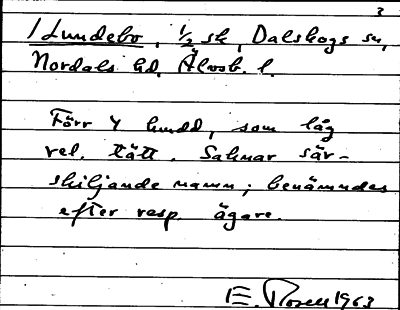 3
/Lundebo, 1/2 sk, Dalskogs sn,
Nordals hd, Älvsb. l.
Förr 4 hmdd, som låg
rel. tätt. Saknar sär-
skiljande namn; benämndes
efter resp. ägare.
E. Rosell 1963